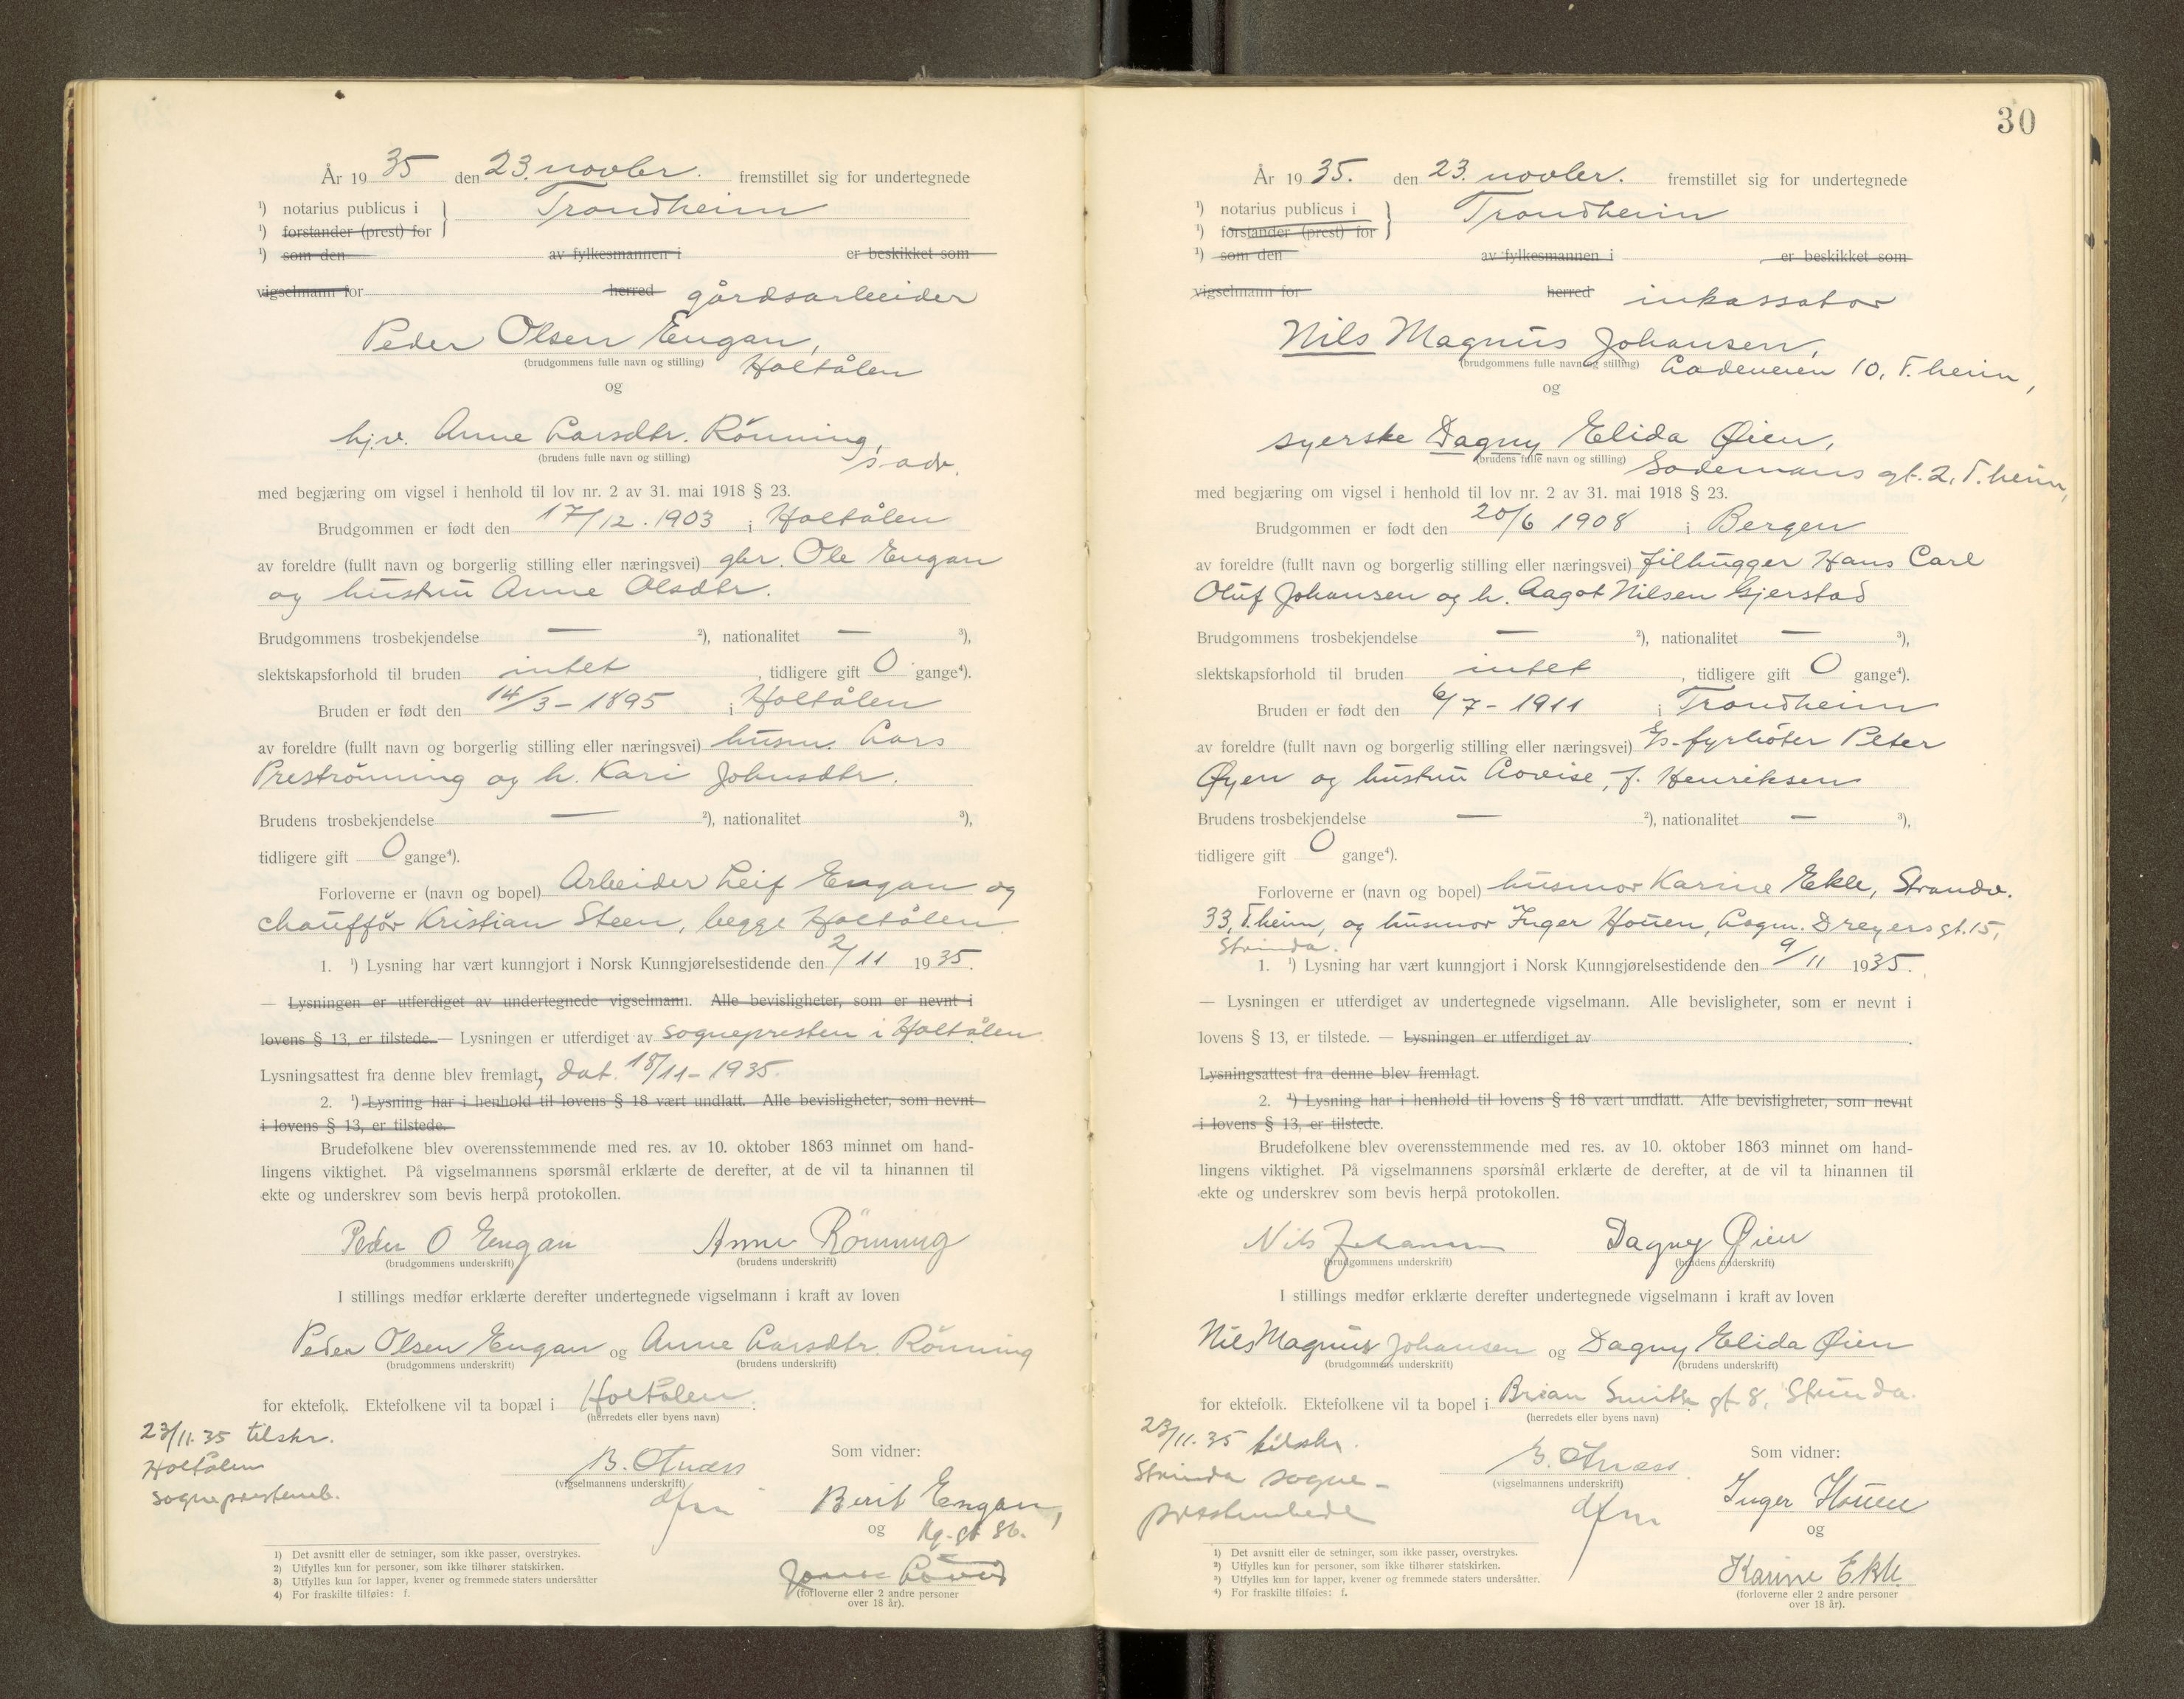 År 19 35 den 23. novbr. fremstillet sig for undertegnede
¹) notarius publicus i Trondheim
¹) forstander (prest) for
¹) som den av fylkesmannen i er beskikket som
vigselmann for herred gårdsarbeider
Peder Olsen Engan,
(brudgommens fulle navn og stilling) Holtålen
og
hj.v. Anne Larsdtr. Rönning,
(brudens fulle navn og stilling) s. adr.
med begjæring om vigsel i henhold til lov nr. 2 av 31. mai 1918 § 23.
Brudgommen er født den 17/12. 1903 i Holtålen
av foreldre (fullt navn og borgerlig stilling eller næringsvei) gbr. Ole Engan
og hustru Anne Olsdtr.
Brudgommens trosbekjendelse — ²), nationalitet — ³),
slektskapsforhold til bruden intet, tidligere gift 0 gange⁴).
Bruden er født den 14/3 - 1895 i Holtålen
av foreldre (fullt navn og borgerlig stilling eller næringsvei) husm. Lars
Preströnning og h. Kari Johnsdtr.
Brudens trosbekjendelse — ²), nationalitet ³),
tidligere gift 0 gange⁴).
Forloverne er (navn og bopel) Arbeider Leif Engan og
chaufför Kristian Steen, begge Holtålen.
1. ¹) Lysning har vært kunngjort i Norsk Kunngjørelsestidende den 2/11 1935.
— Lysningen er utferdiget av undertegnede vigselmann. Alle bevisligheter, som er nevnt i
lovens § 13, er tilstede. — Lysningen er utferdiget av sognepresten i Holtålen.
Lysningsattest fra denne blev fremlagt, dat. 18/11 - 1935.
2. ¹) Lysning har i henhold til lovens § 18 vært undlatt. Alle bevisligheter, som nevnt
i lovens § 13, er tilstede.
Brudefolkene blev overensstemmende med res. av 10. oktober 1863 minnet om hand-
lingens viktighet. På vigselmannens spørsmål erklærte de derefter, at de vil ta hinannen til
ekte og underskrev som bevis herpå protokollen.
Peder O Engan Anne Rönning
(brudgommens underskrift) (brudens underskrift)
I stillings medfør erklærte derefter undertegnede vigselmann i kraft av loven
Peder Olsen Engan og Anne Larsdtr. Rönning
(brudgommens underskrift) (brudens underskrift)
for ektefolk. Ektefolkene vil ta bopæl i Holtålen.
(herredets eller byens navn)
23/11. 35 tilskr.
Holtålen
sogneprestemb.
Som vidner:
B.
(vigselmannens underskrift)
dfm
Berit Engan,
og Kg. gt 86.
(forloverne eller 2 andre personer
over 18 år).
1) Det avsnitt eller de setninger, som ikke passer, overstrykes.
2) Utfylles kun for personer, som ikke tilhører statskirken.
3) Utfylles kun for lapper, kvener og fremmede staters undersåtter
4) For fraskilte tilføies: f.
30
År 19 35. den 23. novbr. fremstillet sig for undertegnede
¹) notarius publicus i Trondheim
¹) forstander (prest) for
¹) som den av fylkesmannen i er beskikket som
vigselmann for herred inkassator
Nils Magnus Johansen,
(brudgommens fulle navn og stilling) Ladeveien 10, T.heim,
og
syerske Dagny Elida Øien,
(brudens fulle navn og stilling) Sodemans gt. 2, T.heim,
med begjæring om vigsel i henhold til lov nr. 2 av 31. mai 1918 § 23.
Brudgommen er født den 20/6 1908 i Bergen
av foreldre (fullt navn og borgerlig stilling eller næringsvei) filhugger Hans Carl
Oluf Johansen og h. Aagot Nilsen Gjerstad
Brudgommens trosbekjendelse — ²), nationalitet — ³),
slektskapsforhold til bruden intet, tidligere gift 0 gange⁴).
Bruden er født den 6/7 - 1911 i Trondheim
av foreldre (fullt navn og borgerlig stilling eller næringsvei) E/s-fyrböter Peter
Øyen og hustru Lovise, f. Henriksen
Brudens trosbekjendelse — ²), nationalitet — ³),
tidligere gift 0 gange⁴).
Forloverne er (navn og bopel) husmor Karine Ekle, Strandv.
33, T.heim, og husmor Inger Houen, Lagm. Dreyers gt. 15,
Strinda.
1. ¹) Lysning har vært kunngjort i Norsk Kunngjørelsestidende den 9/11 1935.
— Lysningen er utferdiget av undertegnede vigselmann. Alle bevisligheter, som er nevnt i
lovens § 13, er tilstede. — Lysningen er utferdiget av .
Lysningsattest fra denne blev fremlagt.
2. ¹) Lysning har i henhold til lovens § 18 vært undlatt. Alle bevisligheter, som nevnt
i lovens § 13, er tilstede.
Brudefolkene blev overensstemmende med res. av 10. oktober 1863 minnet om hand-
lingens viktighet. På vigselmannens spørsmål erklærte de derefter, at de vil ta hinannen til
ekte og underskrev som bevis herpå protokollen.
Nils Johansen Dagny Øien
(brudgommens underskrift) (brudens underskrift)
I stillings medfør erklærte derefter undertegnede vigselmann i kraft av loven
Nils Magnus Johansen og Dagny Elida Øien
(brudgommens underskrift) (brudens underskrift)
for ektefolk. Ektefolkene vil ta bopel i Brian Smiths gt 8, Strinda.
(herredets eller byens navn)
23/11. 35 tilskr.
Strinda sogne-
prestembede
Som vidner:
B.
(vigselmannens underskrift)
dfm
Inger Houen
og
Karine Ekle
(forloverne eller 2 andre personer
over 18 år).
1) Det avsnitt eller de setninger, som ikke passer, overstrykes.
2) Utfylles kun for personer, som ikke tilhører statskirken.
3) Utfylles kun for lapper, kvener og fremmede staters undersåtter.
4) For fraskilte tilføies: f.